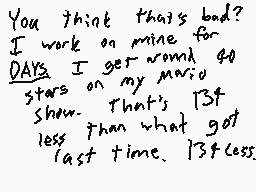 You think that's bad?
I work on mine for
DAYS I get around 40
stars on my Mario
show. That's 134
less than what got
last time. 134 less.